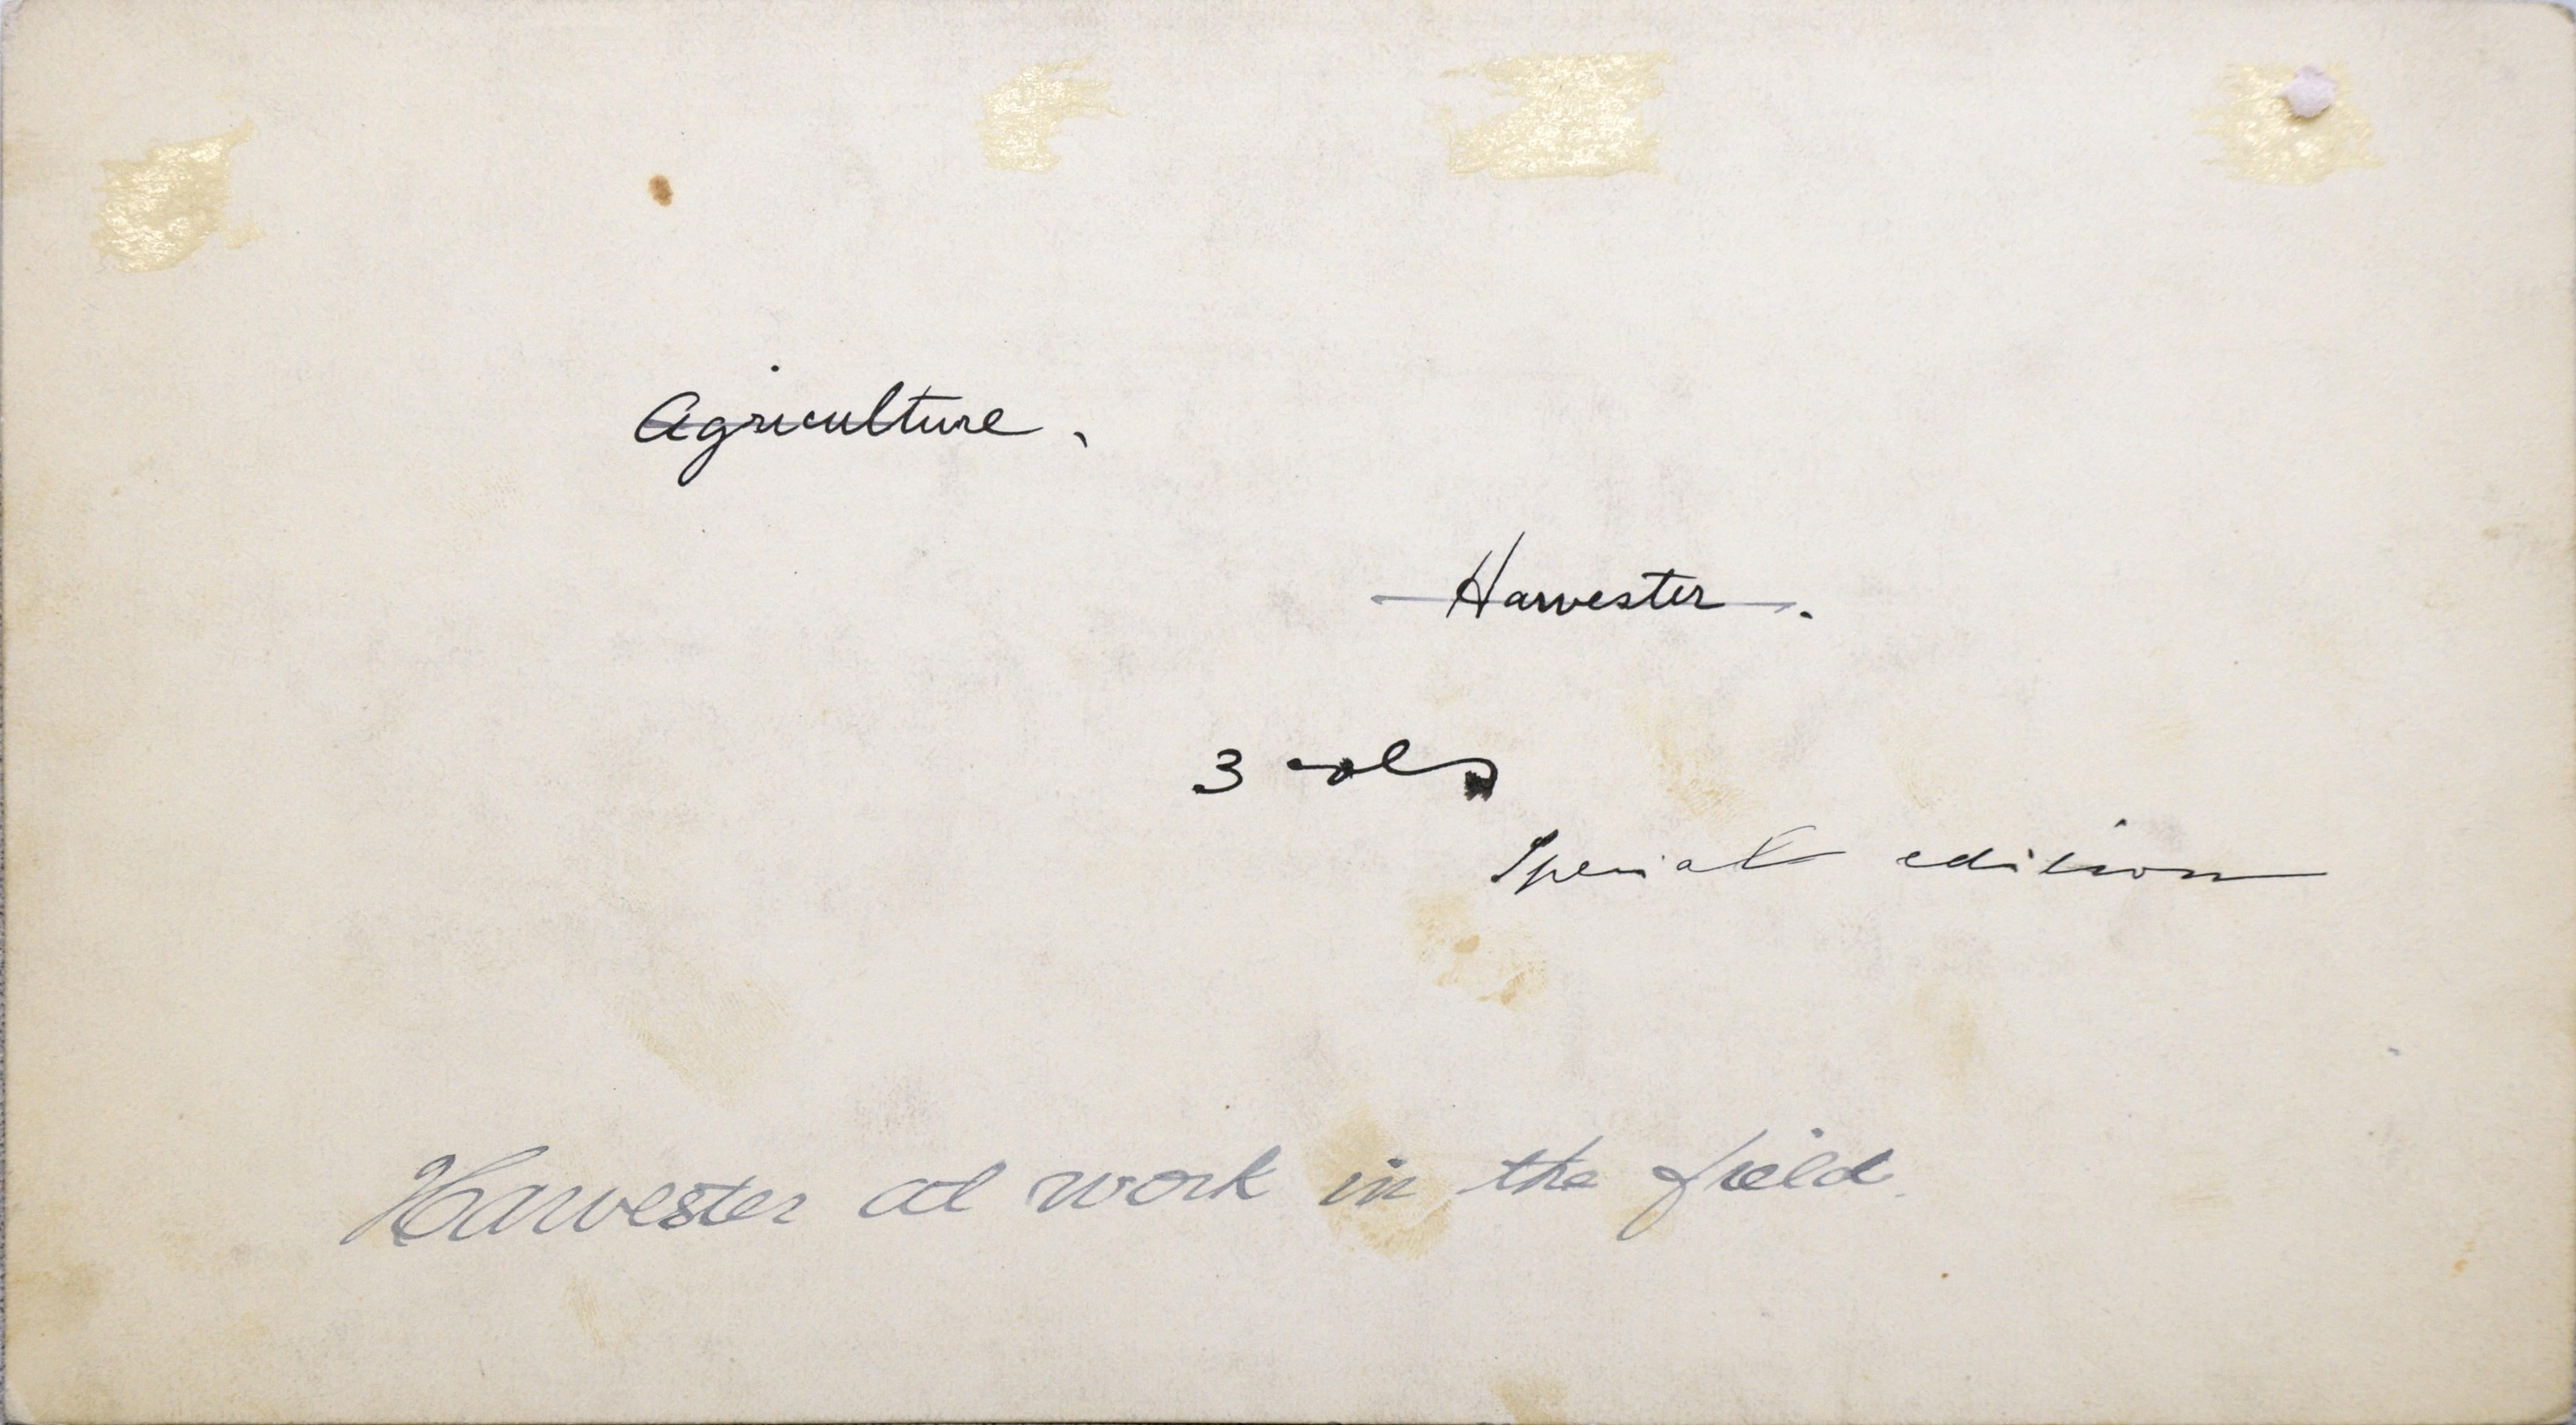 Agriculture.
Harvester.
3 cols
Special edition
Harvester at work in the field.